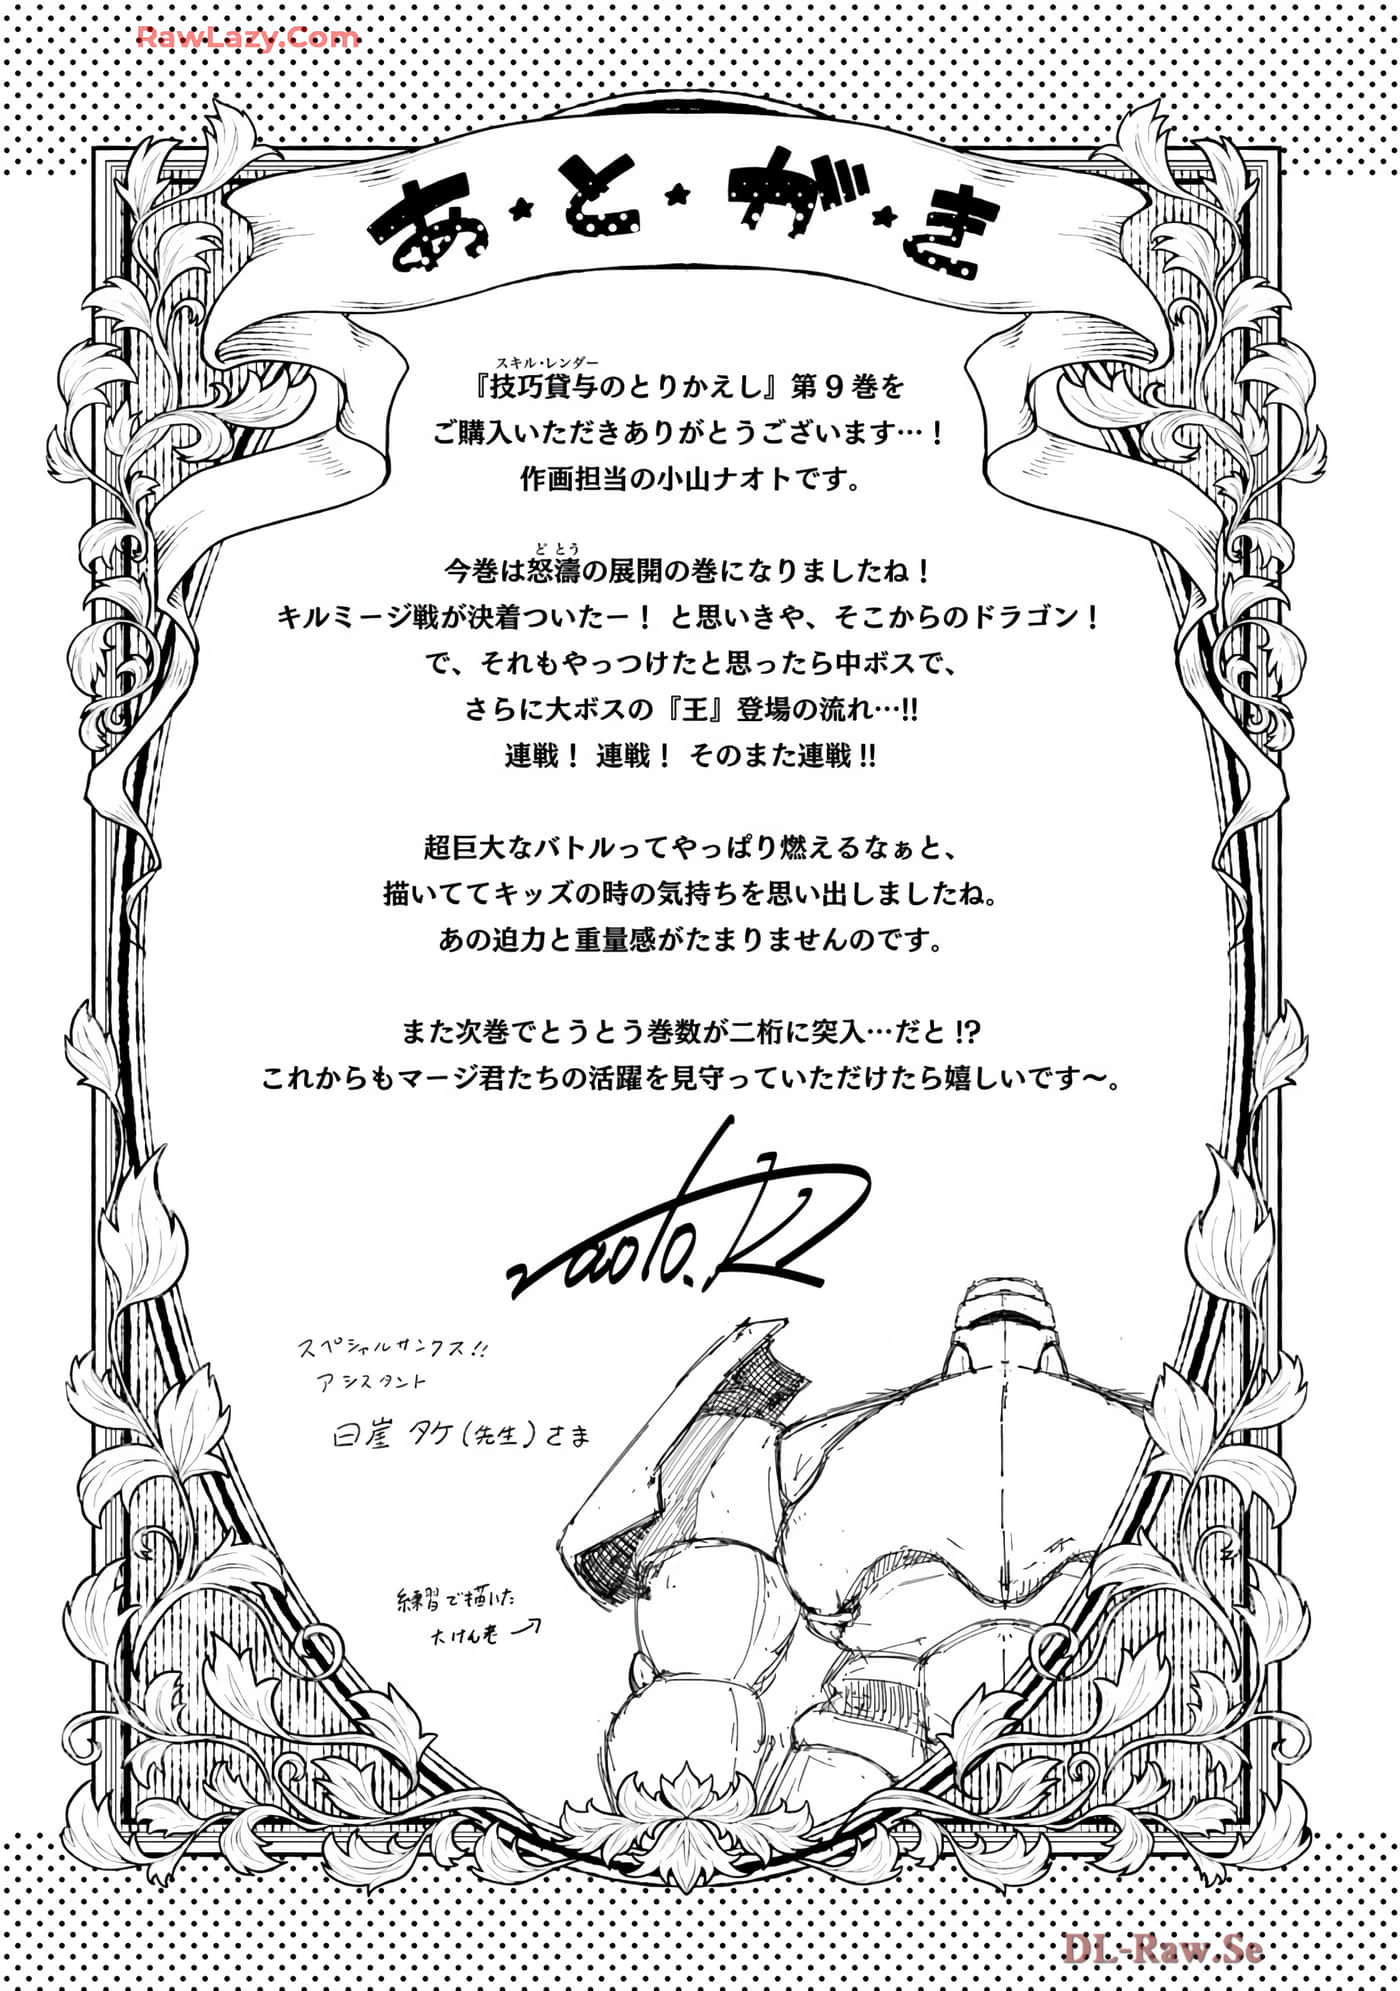 RawLazy.Com
あ・と・が・き
スキル・レンダー
『技巧貸与のとりかえし』第9巻を
ご購入いただきありがとうございます…！
作画担当の小山ナオトです。
ど とう
今巻は怒濤の展開の巻になりましたね！
キルミージ戦が決着ついたー！ と思いきや、そこからのドラゴン！
で、それもやっつけたと思ったら中ボスで、
さらに大ボスの『王』登場の流れ…!!
連戦！ 連戦！ そのまた連戦!!
超巨大なバトルってやっぱり燃えるなぁと、
描いててキッズの時の気持ちを思い出しましたね。
あの迫力と重量感がたまりませんのです。
また次巻でとうとう巻数が二桁に突入…だと!?
これからもマージ君たちの活躍を見守っていただけたら嬉しいです〜。
スペシャルサンクス!!
アシスタント
日崖 タケ(先生)さま
練習で描いた
大けん老
DL-Raw.Se